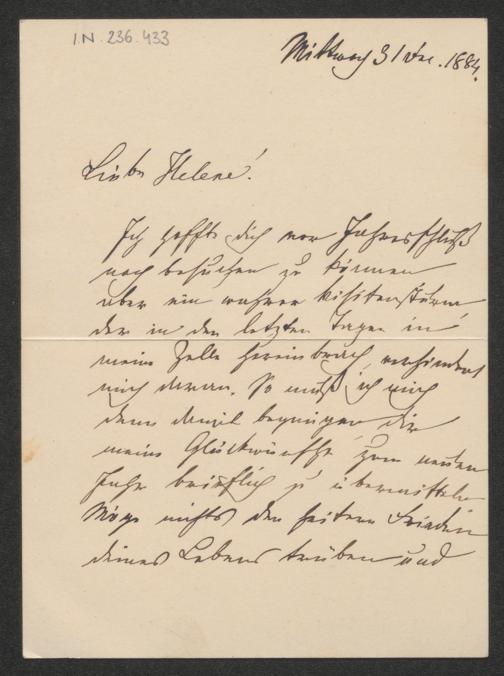 I.N. 236.433
Mittwoch 31 Dez. 1884.
Liebe Helene!
Ich hoffte dich vor Jahresschluß
noch besuchen zu können
aber ein wahrer Visitensturm
der in den letzten Tagen in
meine Zelle hereinbrach, verhindert
mich daran. So muß ich mich
denn damit begnügen dir
meine Glückwünsche zum neuen
Jahr brieflich zu übermitteln
Möge nichts den heitern Frieden
deines Lebens trüben und